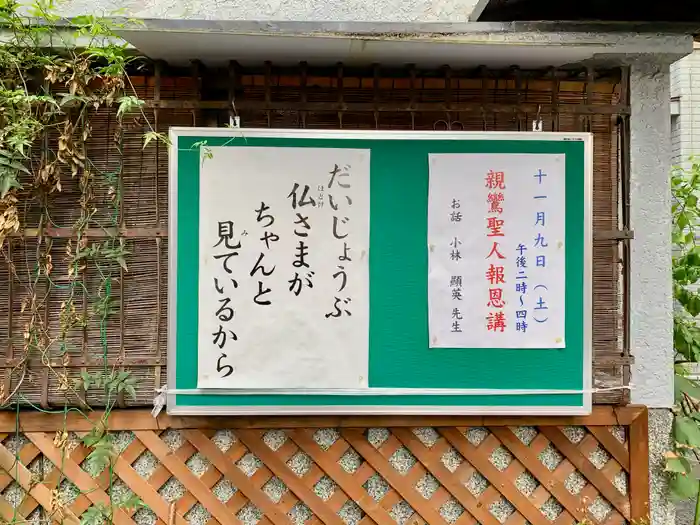 十一月九日（土）
午後二時～四時
親鸞聖人報恩講
お話 小林 顯英 先生
だいじょうぶ
ほとけ
仏さまが
ちゃんと
み
見ているから